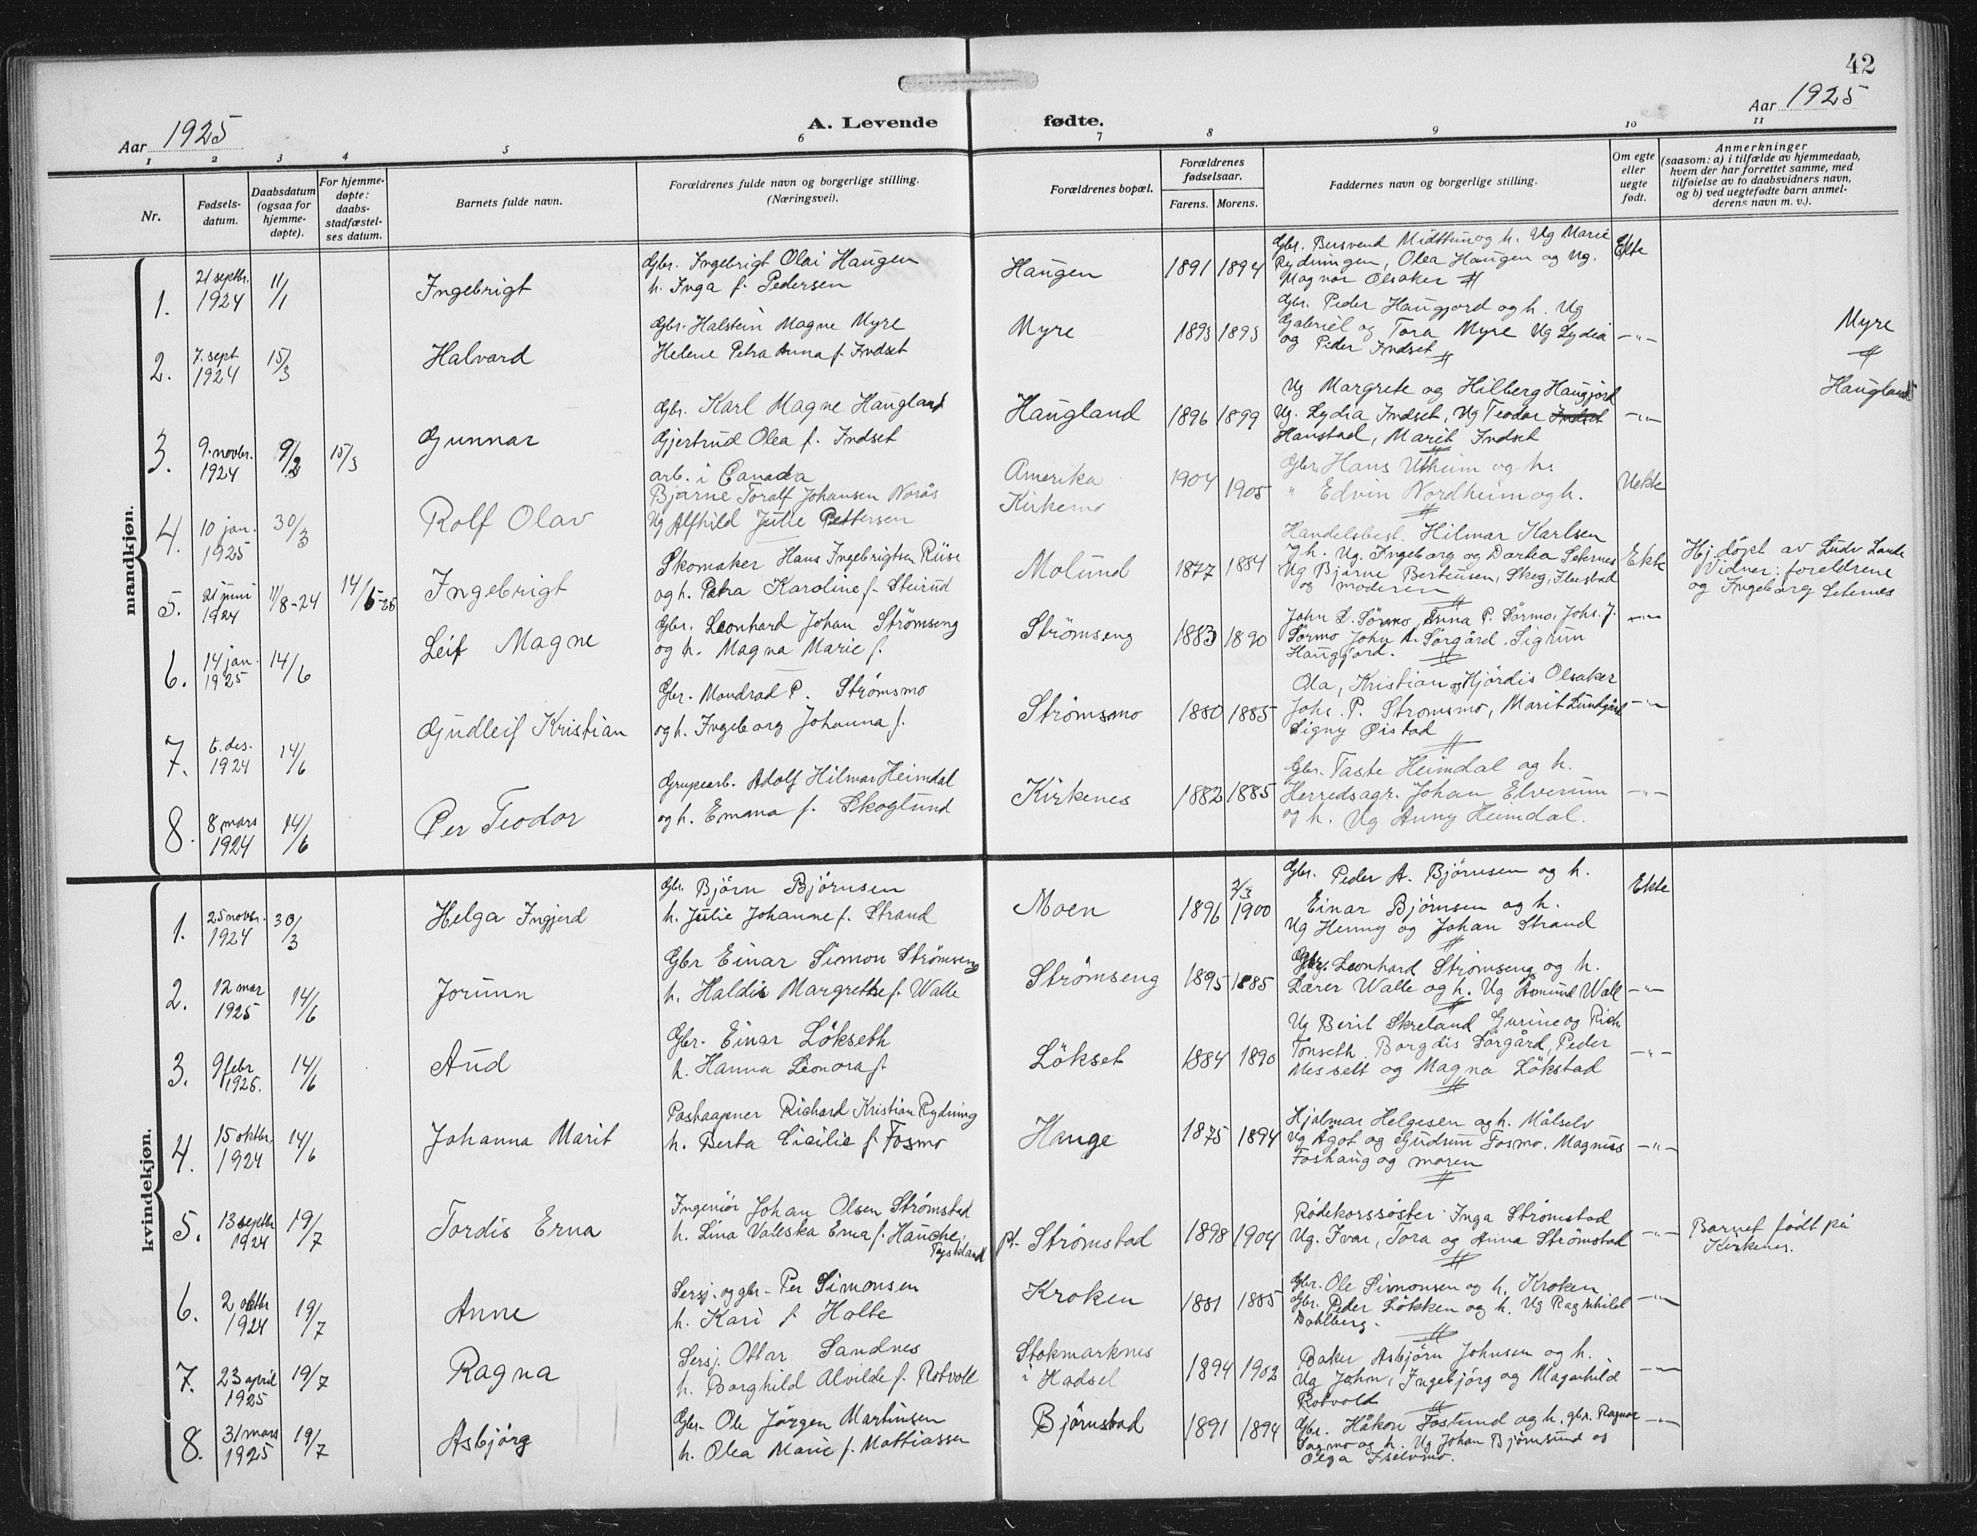 42
Aar 1925
A. Levende fødte.
Aar 1925
1 2 3 4 5 6 7 8 9 10 11
Nr.
Fødsels-
datum.
Daabsdatum
(ogsaa for
hjemme-
døpte).
For hjemme-
døpte:
daabs-
stadfæstel-
ses datum.
Barnets fulde navn.
Forældrenes fulde navn og borgerlige stilling.
(Næringsvei).
Forældrenes bopæl.
Forældrenes
fødselsaar.
Farens. Morens.
Faddernes navn og borgerlige stilling.
Om egte
eller
uegte
født.
Anmerkninger
(saasom: a) i tilfælde av hjemmedaab,
hvem der har forrettet samme, med
tilføielse av to daabsvidners navn,
og b) ved uegtefødte barn anmel-
derens navn m. v.).
mandkjøn.
1. 21 septbr. 1924 11/1 Ingebrigt
Gbr. Ingebrigt Olai Haugen
h. Inga f. Pedersen
Haugen 1891 1894
Gbr. Bersvend Midttun og h. Ug Marie
Rydningen, Olea Haugen og Ug.
Magnor Olsaker
Ekte
2. 7. sept 1924 15/3 Halvard
Gbr. Halstein Magne Myre
Helene Petra Anna f. Indset
Myre 1893 1893
Gbr. Peder Haugjord og h. Ug
Gabriel og Tora Myre Ug Lydia
og Peder Indset
-"-
Myre
3. 9. novbr. 1924 9/2 15/3 Gunnar
Gbr. Karl Magne Haugland
Gjertrud Olea f. Indset
Haugland 1896 1899
Ug Margrete og Hilberg Haugjord
Ug. Lydia Indset, Ug Teodor Indset
Hanstad, Marit Indset
-"-
Haugland
4. 10 jan. 1925 30/3 Rolf Olav
arb. i Canada
Bjarne Toralf Johansen Norås
Ug Alfhild Julie Pettersen
Amerika
Kirkemo
1904 1905
Gbr Hans Utheim og h.
" Edvin Nordheim og h.
Uekte
5. 21 juni 1924 11/8-24 14/6-25 Ingebrigt
Skomaker Hans Ingebrigtsen Riise
og h. Petra Karoline f. Steirud
Molund 1877 1884
Handelsbest. Hilmar Karlsen
og h. Ug. Ingeborg og Dortea Seternes
Ug Bjarne Berteusen, Skog,
og moderen
Ekte
Hj. døpt av Ludv Lande
Vidner: foreldrene
og Ingeborg Seternes
6. 14 jan. 1925 14/6 Leif Magne
Gbr. Leonhard Johan Strømseng
og h. Magna Marie f.
Strømseng 1883 1890
John L. Sørmo, P. Sørmo, Johs. J.
Sørmo John A. Sørgård. Sigrun
Haugjord.
-"-
7. 6. des. 1924 14/6 Gudleif Kristian
Gbr. Mondrad P. Strømsmo
og h. Ingeborg Johanna f.
Strømsmo 1880 1885
Ola, Kristian og Hjørdis Olsaker
Johs. P. Strømsmo, Marit Lundgård
Signy Øistad
-"-
8. 8 mars 1924 14/6 Per Teodor
Grupearb. Adolf Hilmar Heimdal
og h. Emma f. Skoglund
Kirkenes 1882 1885
Gbr. Taste Heimdal og h.
Herredsagr. Johan Elverum
og h. Ug Anny Heimdal.
-"-
kvindekjøn.
1. 25 novbr. 1924 30/3 Helga Ingjerd
Gbr. Björn Bjørnsen
h. Julie Johanne f. Strand
Moen 1896 2/3 1900
Gbr. Peder A. Bjørnsen og h.
Einar Bjørnsen og h.
Ug Henny og Johan Strand
Ekte
2. 12 mar 1925 14/6 Jorunn
Gbr Einar Simon Strømseng
h. Haldis Margrethe f. Walle
Strømseng 1895 1885
Gbr. Leonhard Strømseng og h.
Lærer Walle og h. Ug Asmund Wall
-"-
3. 9 febr 1925. 14/6 Aud
Gbr. Einar Lökseth
h. Hanna Leonora f.
Lökset 1884 1890
Ug Berit Skreland Gurine og Rich.
Tonseth Borgdis Sørgård, Peder
Messelt og Magna Lökstad
-"-
4. 15 oktbr. 1924 14/6 Johanna Marit
Postaapner Richard Kristian Rydning
h. Berta Cicilie f. Fosmo
Hauge 1875 1894
Hjalmar Helgesen og h. Målselv
Ug Agot og Gudrun Fosmo. Magnus
Foshaug og moren
-"-
5. 13 septbr 1924 19/7 Tordis Erna
Ingeniør Johan Olsen Strømstad
h. Lina Valeska Erna f. Hauche,
Tyskland
pt. Strømstad 1898 1904
Rødekorssøster Inga Strømstad
Ug. Ivar, Tora og Anna Strømstad
-"-
Barnet født på
Kirkenes.
6. 2 oktbr 1924 19/7 Anne
Sersj. og gbr. Per Simonsen
h. Kari f Holte
Kroken 1881 1885
Gbr. Ole Simonsen og h. Kroken
Gbr. Peder Løkken og h. Ug Ragnhild
Dahlberg.
-"-
7. 23 april 1925 19/7 Ragna
Sersj. Ottar Sandnes
h. Borghild Alvilde f. Rotvoll
Stokmarknes
i Hadsel
1894 1902
Baker Asbjørn Johnsen og h.
Ug John, Ingebjørg og Magnhild
Rotvold
-"-
8. 31 mars 1925 19/7 Asbjørg
Gbr. Ole Jørgen Martinsen
h. Olea Marie f. Mattiassen
Bjørnstad 1891 1894
Gbr. Håkon Foslund og h. gbr. Ragnar
Sagmo og h. Ug Johan Bjørnsund og
Olga Iselvmo.
-"-